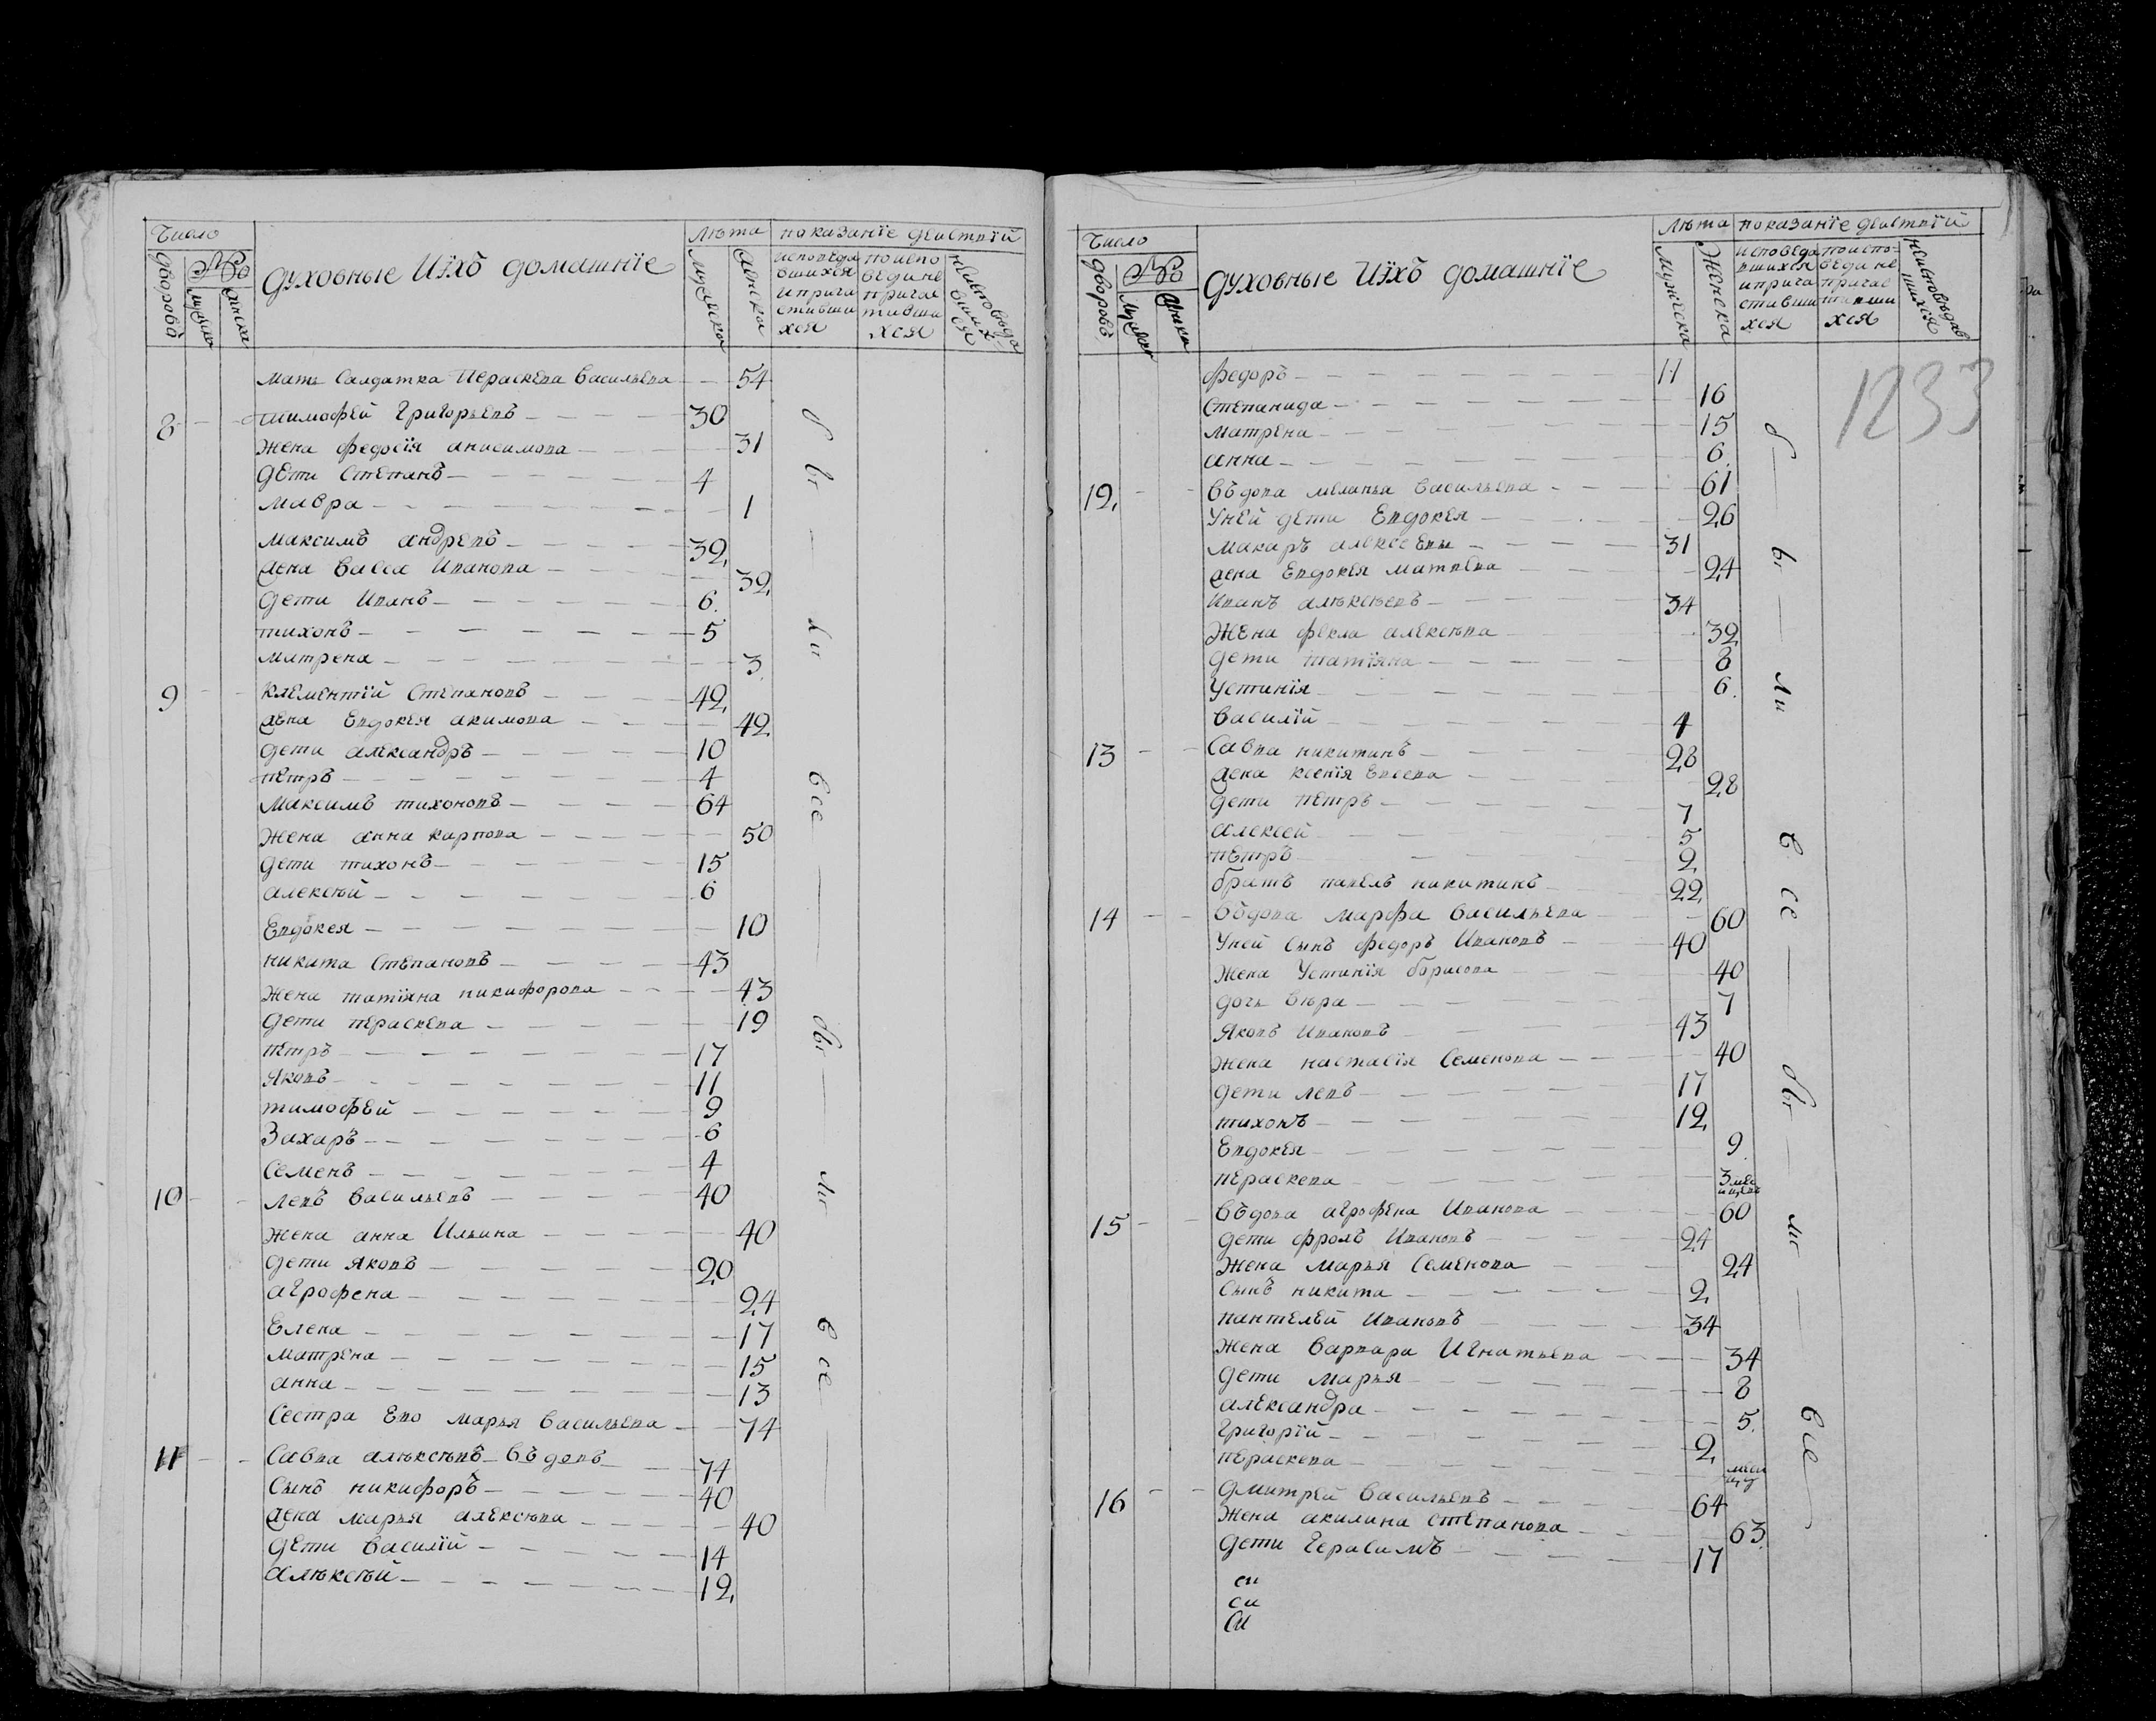 Число
Лѣта показанїе действїй
дворовъ
№
мужска
женска
духовные Ихъ домашнїе
мужеска
женска
исповеда
вшихся
и прича
стивши
хся
по испо
веди не
причас
тивши
хся
не исповеда
вших
ся
мать Салдатка Пераскева Васильева 54
8 тимофей Григорьевъ 30
жена федосїя анисимова 31
дети Степанъ 4
мавра 1
максимъ андревъ 32
жена Васса Иванова 32
дети Иванъ 6
тихонъ 5
матрена 3
9 клементїй Степановъ 42
жена Евдокея акимова 42
дети александръ 10
петръ 4
максимъ тихоновъ 64
жена анна карпова 50
дети тихонъ 15
алексѣй 6
Евдокея 10
никита Степановъ 43
жена татїяна никифорова 43
дети пераскева 19
петръ 17
Яковъ 11
тимофей 9
Захаръ 6
Семенъ 4
10 левъ Васильевъ 40
жена анна Ильина 40
дети Яковъ 20
агрофена 24
Елена 17
матрена 15
анна 13
Сестра Ево марья Васильева 74
11 Савва алѣксѣевъ въдовъ 74
Сынъ никифоръ 40
жена марья алексѣва 40
дети Василїй 14
алѣксѣй 12
Все
Все
Число
Лѣта показанїе действїй
дворовъ
№
мужска
женска
духовные Ихъ домашнїе
мужеска
Женска
исповеда
вшихся
и прича
стивши
хся
по испо-
веди не
причас
тивши
хся
не исповедав
шихся
1233
федоръ 11
Степанида 16
матрена 15
анна 6
12 въдова меланья Васильева 61
Уней дети Евдокея 26
макаръ алексеевы 31
жена Евдокея матвева 24
Иванъ алѣксѣевъ 34
Жена фекла алексѣва 32
дети татїяна 8
Устинїя 6
Василїй 4
13 Савва никитинъ 28
жена ксенїя Евсева 28
дети петръ 7
алексей 5
петръ 2
братъ павелъ никитинъ 22
14 въдова марфа Васильева 60
Уней Сынъ федоръ Ивановъ 40
жена Устинїя борисова 40
дочь Вѣра 7
Яковъ Ивановъ 43
жена настасїя Семенова 40
дети левъ 17
тихонъ 12
Евдокея 9
пераскева 3 мес
ицевъ
15 въдова агрофена Иванова 60
дети фролъ Ивановъ 24
жена марья Семенова 24
Сынъ никита 2
пантелей Ивановъ 34
жена Варвара Игнатьева 34
дети марья 8
александра 5
Григорїй 2
пераскева
16 дмитрей Васильевъ 64
жена акилина степанова 63
дети Герасимъ 17
си
си
Си
Все
Все